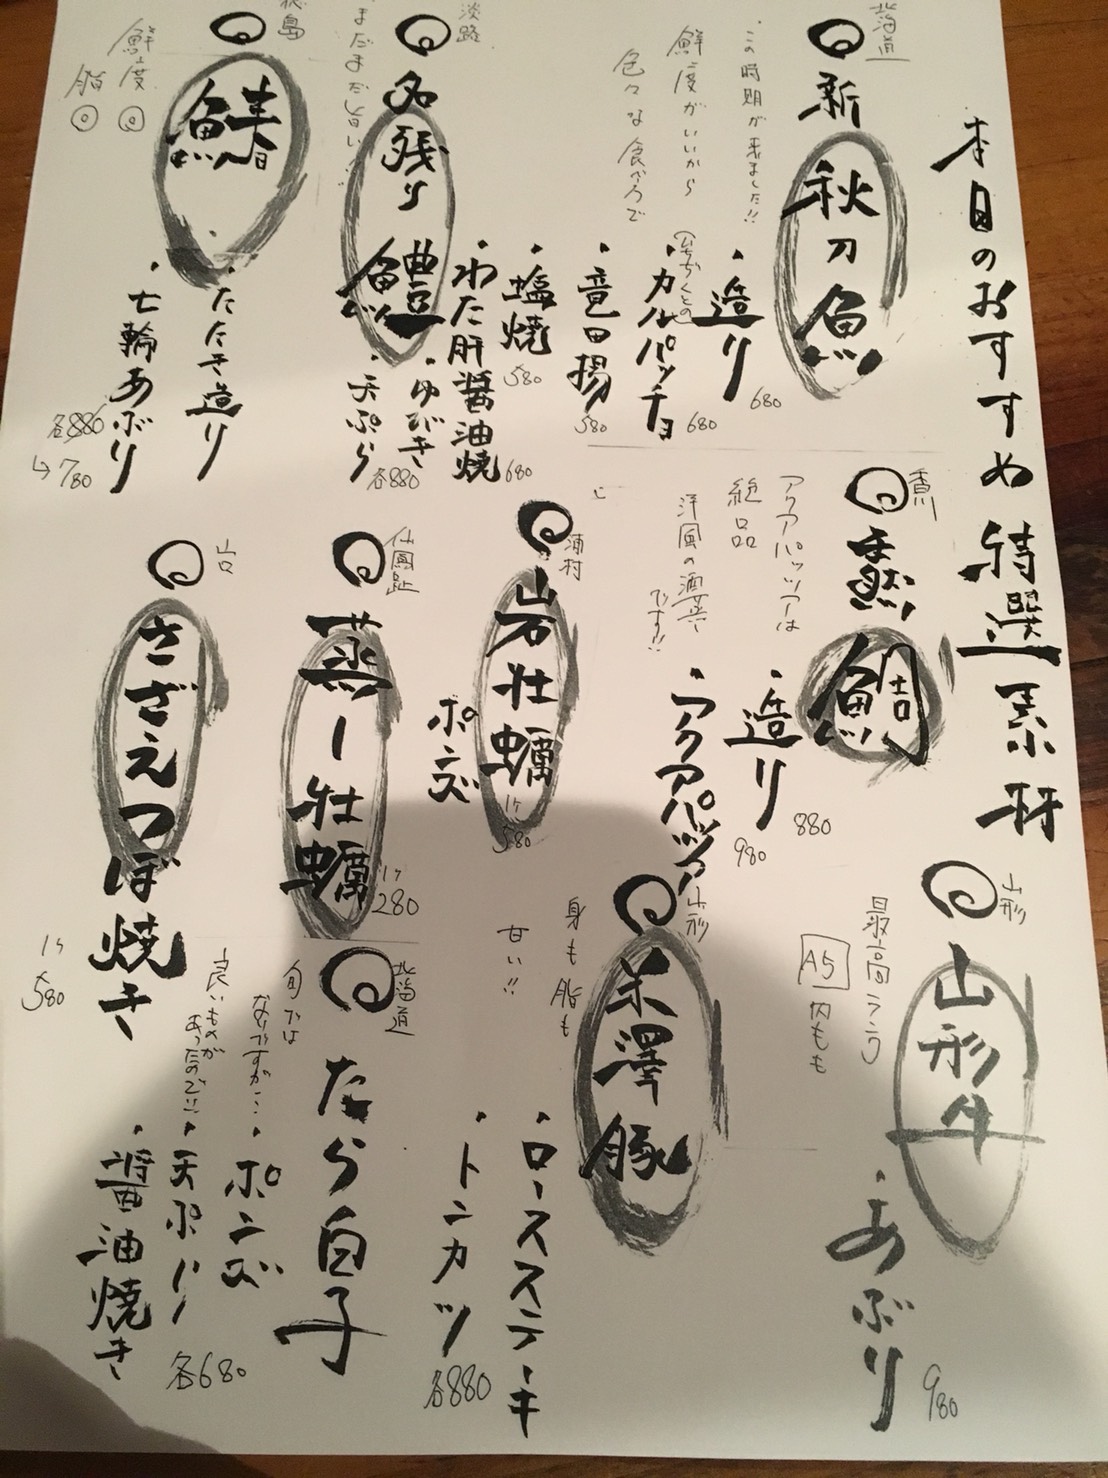 本日のおすすめ 特選素材
北海道
新
秋刀魚
この時期が来ました!!
鮮度がいいから
色々な食べ方で
・造り 680
・カルパッチョ 680
・竜田揚 580
・塩焼 580
・わた肝醤油焼 680
淡路
名残り 鱧
まだまだ旨い!!
・ゆびき
・天ぷら
各880
徳島
鰆
鮮度◎
脂◎
・たたき造り
・七輪あぶり
各880
↳780
香川
真鯛
アクアパッツァーは
絶品
洋風の酒蒸
です!!
・造り 880
・アクアパッツァー 980
浦村
岩牡蠣
1ヶ
580
ポンズ
仙鳳趾
蒸し牡蠣
1ヶ
280
山口
さざえつぼ焼き
1ヶ
580
山形
山形牛
最高ランク
A5 内もも
・あぶり 980
山形
米澤豚
身も脂も
甘い!!
・ロースステーキ
・トンカツ
各880
北海道
たら白子
旬では
ないですが…
良いものが
あったので!!
・ポンズ
・天ぷら
・醤油焼き
各680